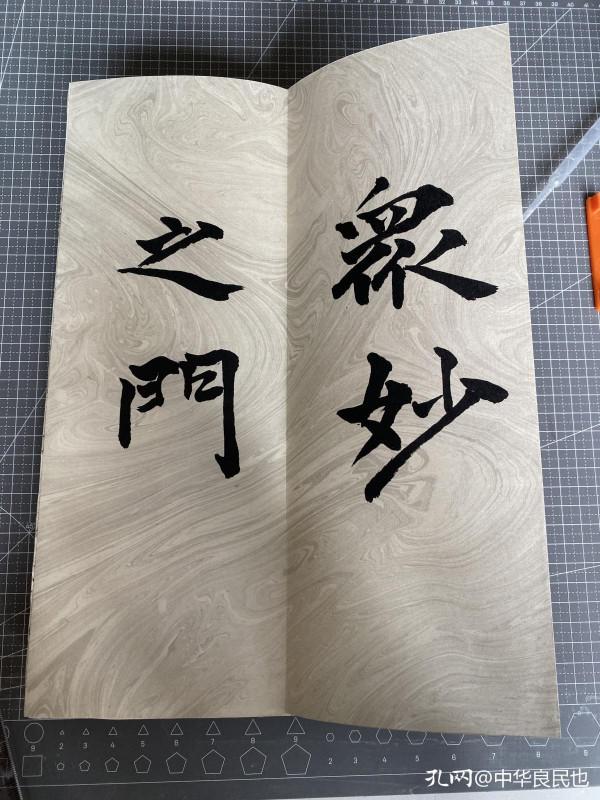 眾妙
之門
孔网@中华良民也